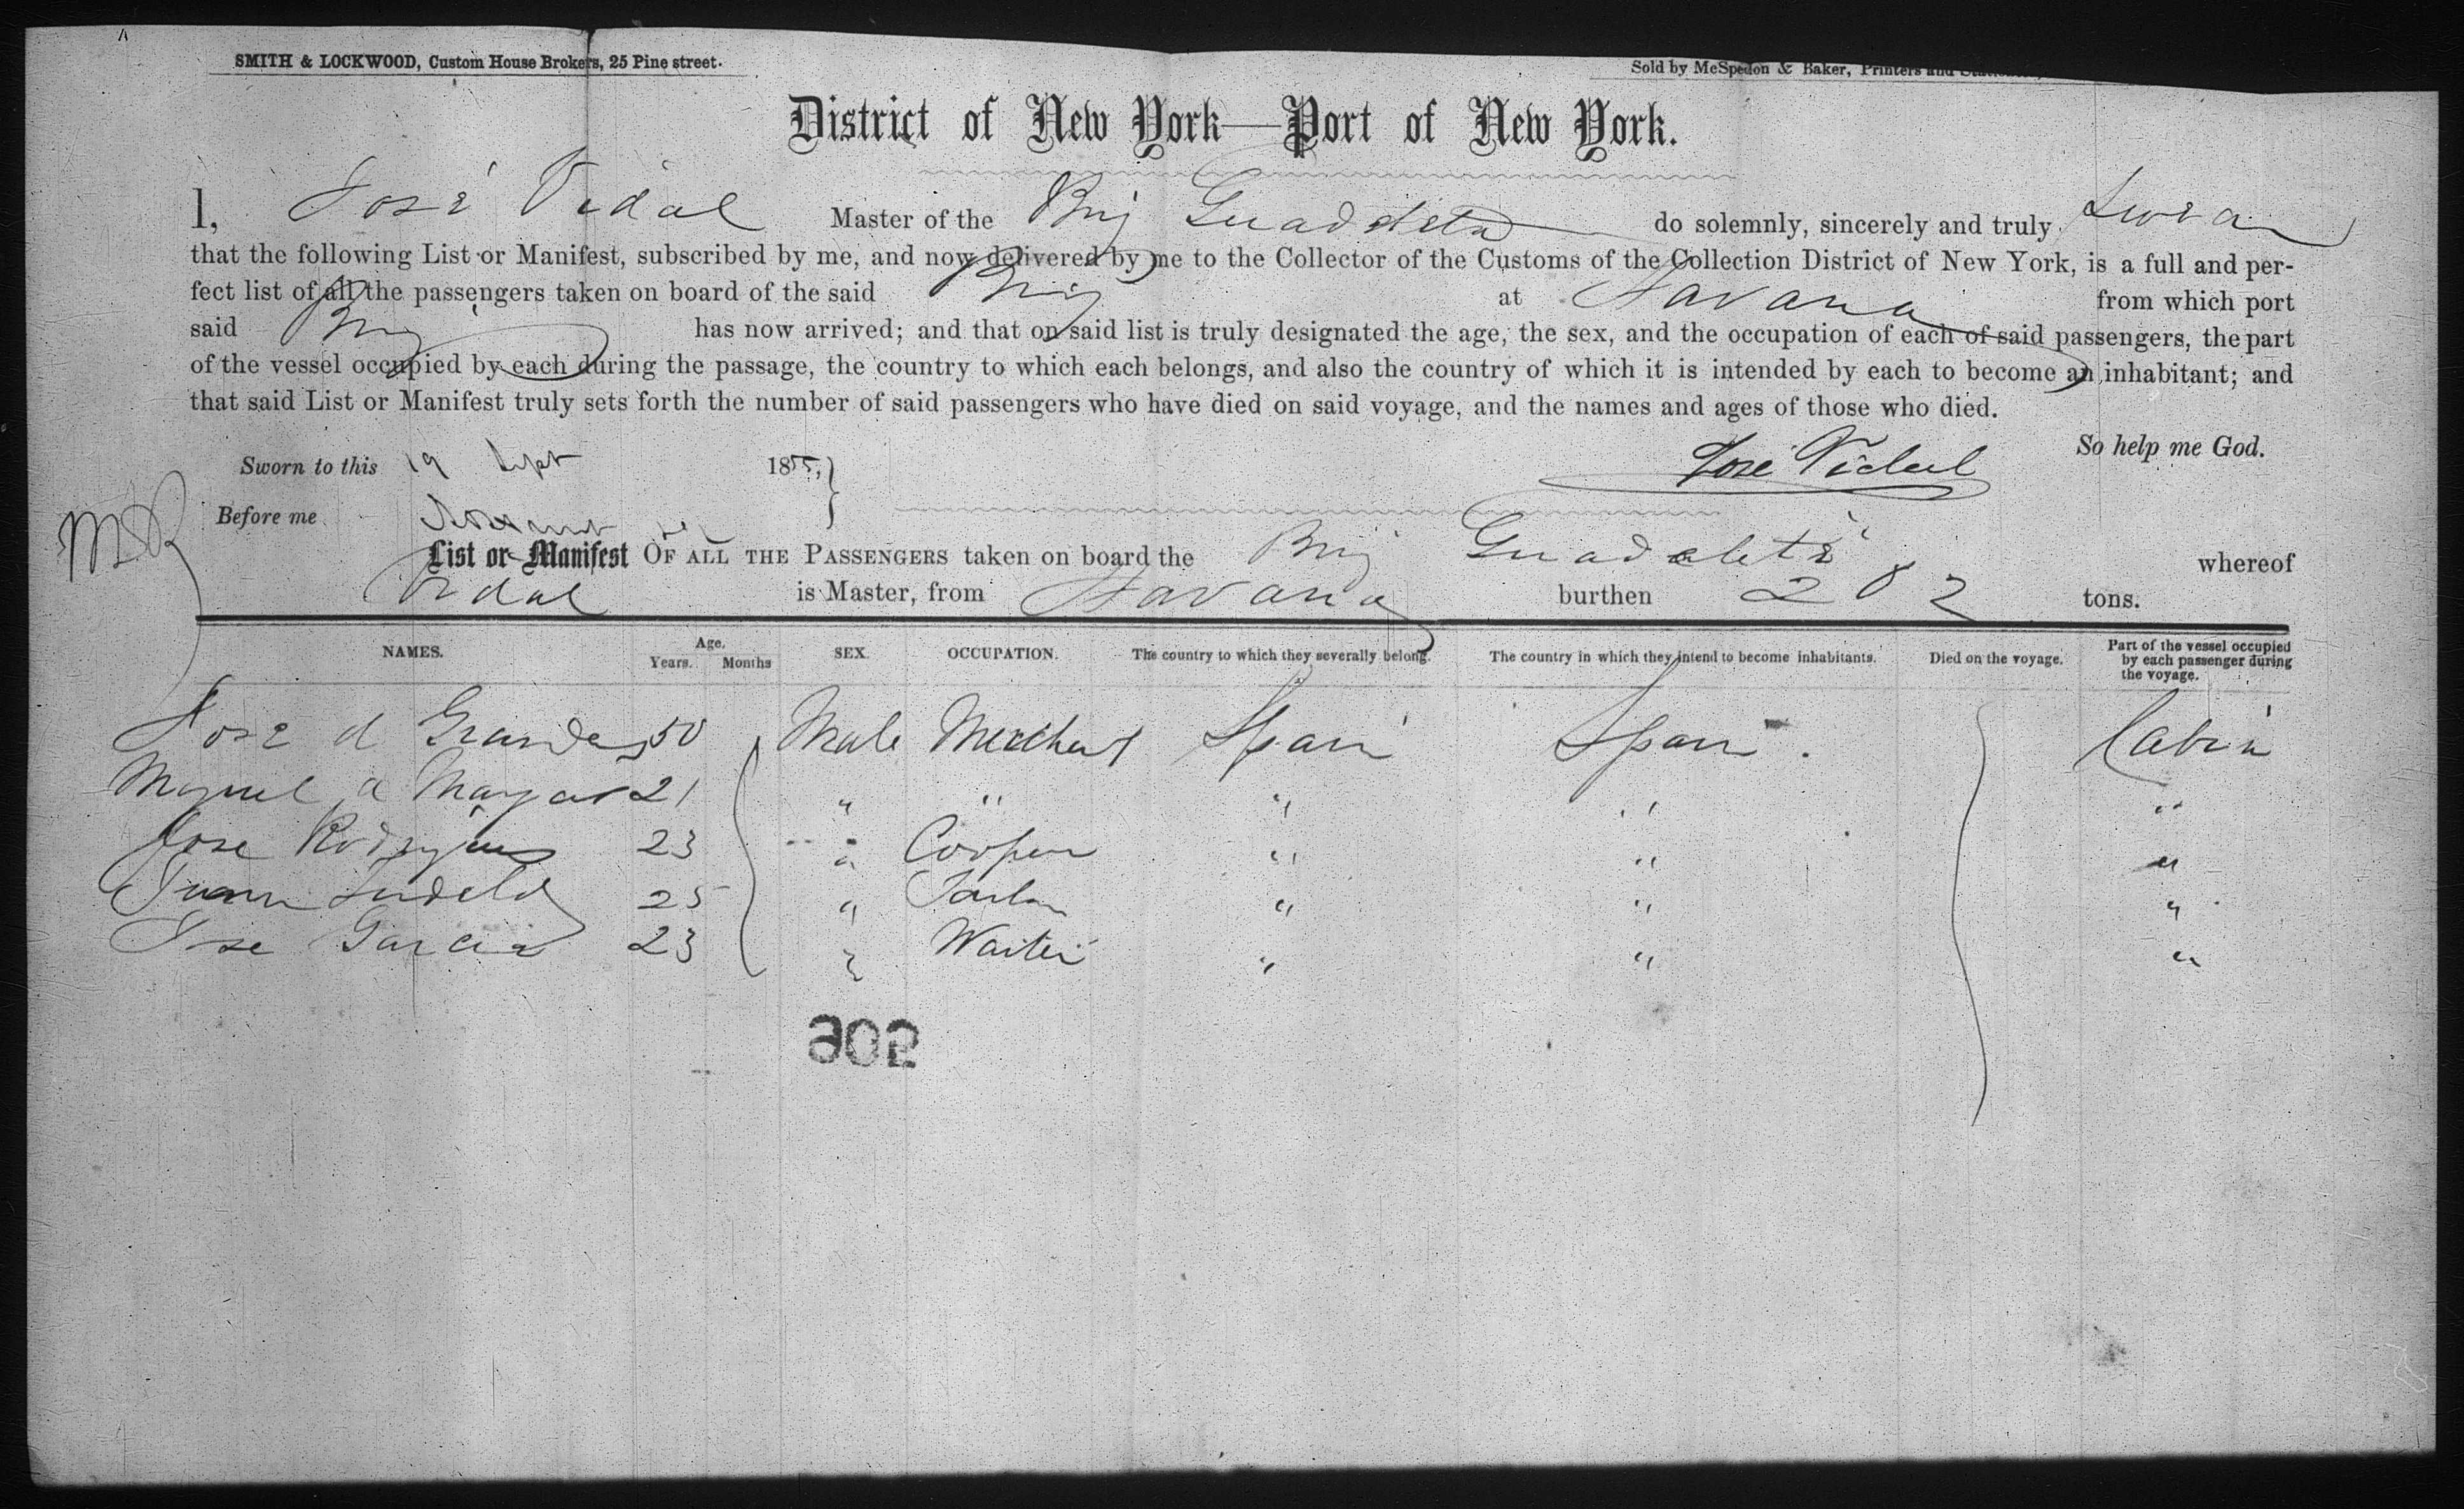 SMITH & LOCKWOOD, Custom House Brokers, 25 Pine street.
Sold by McSpedon & Baker, Printers and
District of New York—Port of New York.
I, José Vidal Master of the Brig do solemnly, sincerely and truly Swear
that the following List or Manifest, subscribed by me, and now delivered by me to the Collector of the Customs of the Collection District of New York, is a full and per-
fect list of all the passengers taken on board of the said Brig at Havana from which port
said Brig has now arrived; and that on said list is truly designated the age, the sex, and the occupation of each of said passengers, the part
of the vessel occupied by each during the passage, the country to which each belongs, and also the country of which it is intended by each to become an inhabitant; and
that said List or Manifest truly sets forth the number of said passengers who have died on said voyage, and the names and ages of those who died.
So help me God.
Sworn to this 19 Sept 1855,
José Vidal
Before me
List or Manifest OF ALL THE PASSENGERS taken on board the Brig Guadalete whereof
Vidal is Master, from Havana burthen 282 tons.
NAMES. Age. Years. Months SEX. OCCUPATION. The country to which they severally belong. The country in which they intend to become inhabitants. Died on the voyage. Part of the vessel occupied by each passenger during the voyage.
Jose d 50 Male Merchant Spain Spain. Cabin
Miguel a 21 " " " " "
Jose 23 " Cooper " " "
Juan 25 " " " "
Jose Garcia 23 " Waiter " " "
902